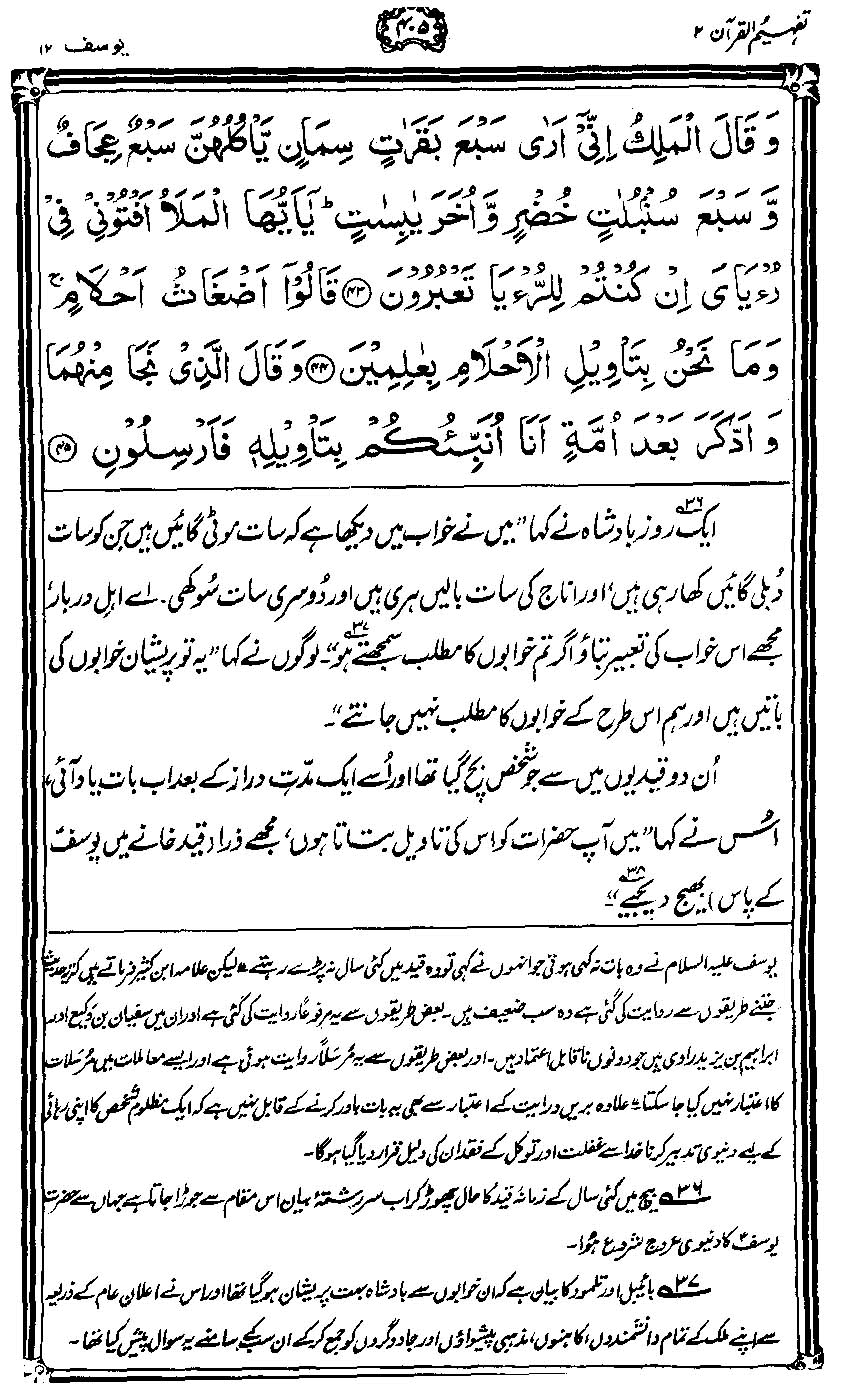 تفہیم القرآن ۲
۴۰۵
یوسف ۱۲
وَ قَالَ الْمَلِكُ اِنِّیْۤ اَرٰی سَبْعَ بَقَرٰتٍ سِمَانٍ یَّاْكُلُهُنَّ سَبْعٌ عِجَافٌ
وَّ سَبْعَ سُنْۢبُلٰتٍ خُضْرٍ وَّ اُخَرَ یٰبِسٰتٍ ؕ یٰۤاَیُّهَا الْمَلَاُ اَفْتُوْنِیْ فِیْ
رُءْیَایَ اِنْ كُنْتُمْ لِلرُّءْیَا تَعْبُرُوْنَ ﴿۴۳﴾ قَالُوْۤا اَضْغَاثُ اَحْلَامٍ ۚ
وَ مَا نَحْنُ بِتَاْوِیْلِ الْاَحْلَامِ بِعٰلِمِیْنَ ﴿۴۴﴾ وَ قَالَ الَّذِیْ نَجَا مِنْهُمَا
وَ ادَّكَرَ بَعْدَ اُمَّةٍ اَنَا اُنَبِّئُكُمْ بِتَاْوِیْلِهٖ فَاَرْسِلُوْنِ ﴿۴۵﴾
ایک۳۶ روز بادشاہ نے کہا ”میں نے خواب میں دیکھا ہے کہ سات موٹی گائیں ہیں جن کو سات
دُبلی گائیں کھا رہی ہیں، اور اناج کی سات بالیں ہری ہیں اور دُوسری سات سُوکھی۔ اے اہلِ دربار،
مجھے اس خواب کی تعبیر بتاؤ اگر تم خوابوں کا مطلب سمجھتے ہو۳۷“۔ لوگوں نے کہا ”یہ تو پریشان خوابوں کی
باتیں ہیں اور ہم اس طرح کے خوابوں کا مطلب نہیں جانتے“۔
اُن دو قیدیوں میں سے جو شخص بچ گیا تھا اور اُسے ایک مدّتِ دراز کے بعد اب بات یاد آئی،
اُس نے کہا ”میں آپ حضرات کو اس کی تاویل بتاتا ہوں، مجھے ذرا (قید خانے میں یوسفؑ
کے پاس) بھیج دیجیے۳۸“۔
یوسف علیہ السلام نے وہ بات نہ کہی ہوتی جو انہوں نے کہی تو وہ قید میں کئی سال نہ پڑے رہتے“ لیکن علامہ ابن کثیر فرماتے ہیں کہ ”یہ حدیث
جتنے طریقوں سے روایت کی گئی ہے وہ سب ضعیف ہیں۔ بعض طریقوں سے یہ مرفوعاً روایت کی گئی ہے اور ان میں سفیان بن وکیع اور
ابراہیم بن یزید راوی ہیں جو دونوں ناقابل اعتماد ہیں۔ اور بعض طریقوں سے یہ مُرسلاً روایت ہوئی ہے اور ایسے معاملات میں مُرسَلات
کا اعتبار نہیں کیا جا سکتا“ علاوہ بریں درایت کے اعتبار سے بھی یہ بات باور کرنے کے قابل نہیں ہے کہ ایک مظلوم شخص کا اپنی رہائی
کے لیے دنیوی تدبیر کرنا خدا سے غفلت اور توکل کے فقدان کی دلیل قرار دیا گیا ہو گا۔
۳۶ بیچ میں کئی سال کے زمانۂ قید کا حال چھوڑ کر اب سر رشتۂ بیان اس مقام سے جوڑا جاتا ہے جہاں سے حضرت
یوسفؑ کا دنیوی عروج شروع ہُوا۔
۳۷ بائیبل اور تلمود کا بیان ہے کہ ان خوابوں سے بادشاہ بہت پریشان ہو گیا تھا اور اس نے اعلان عام کے ذریعہ
سے اپنے ملک کے تمام دانشمندوں، کاہنوں، مذہبی پیشواؤں اور جادوگروں کو جمع کر کے ان سب کے سامنے یہ سوال پیش کیا تھا۔